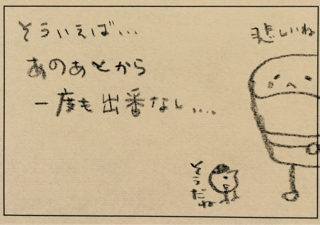 そういえば...
あのあとから
一度も出番なし....
悲しいね
そうだね